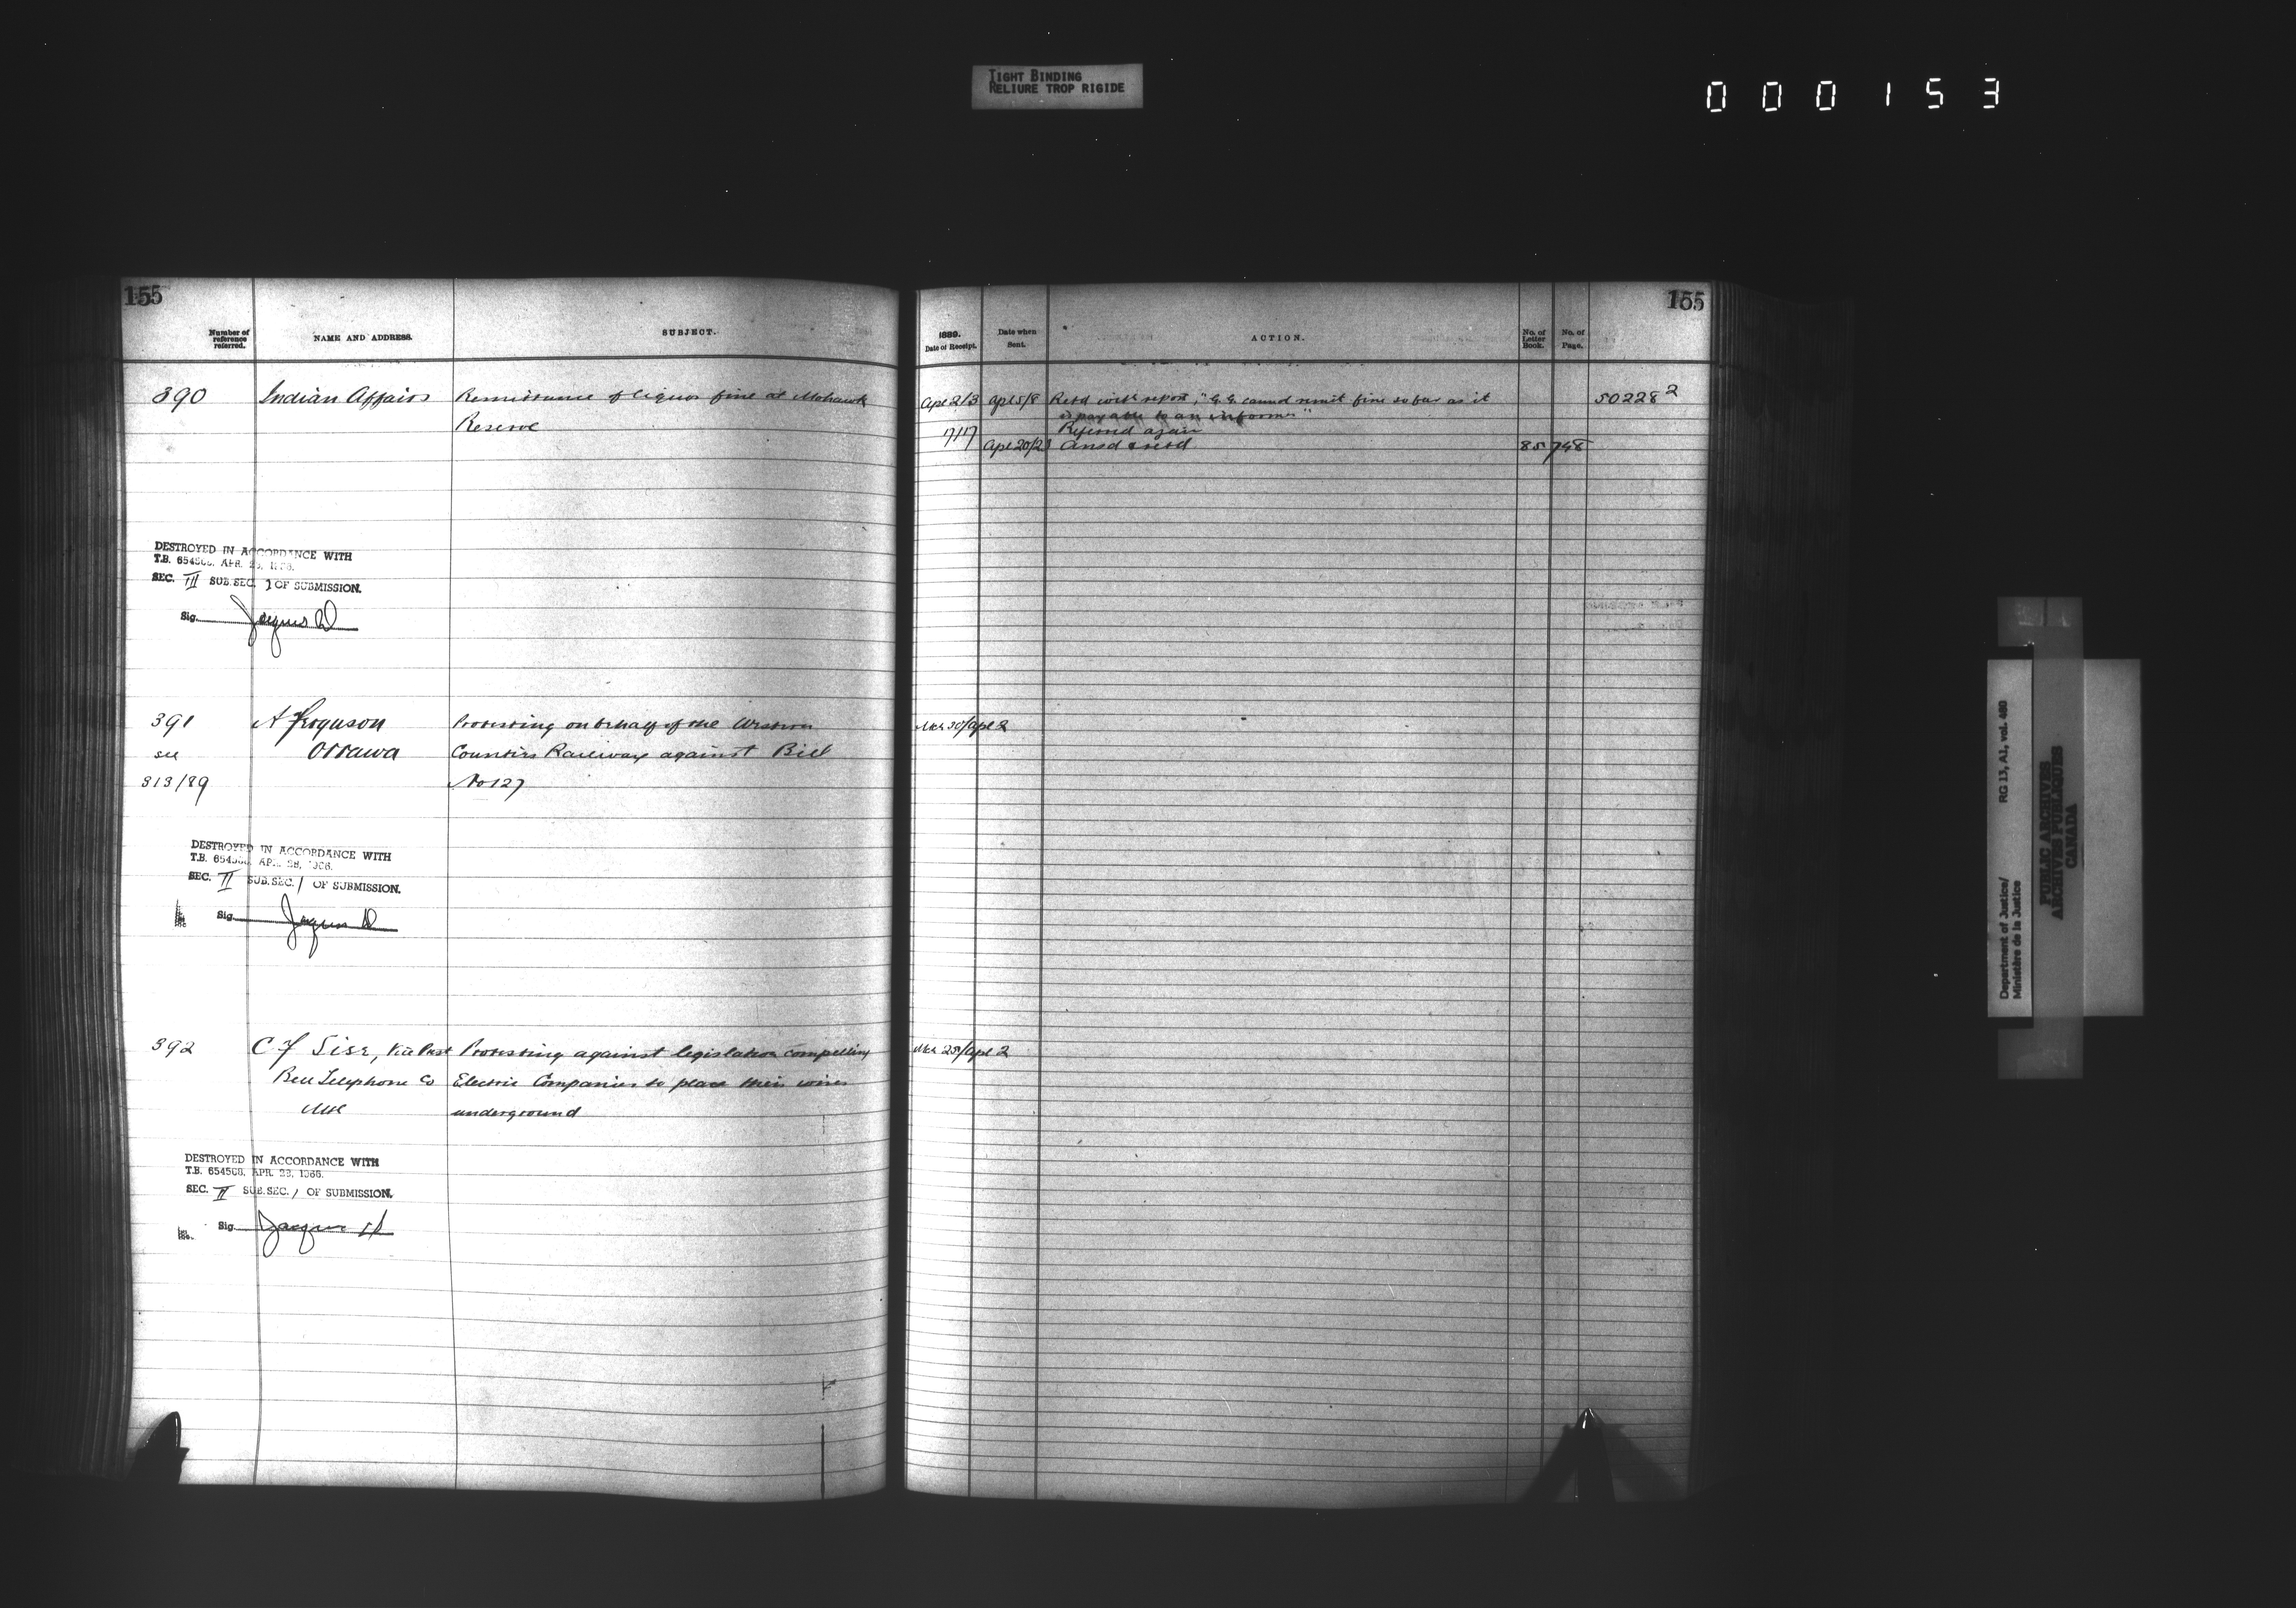 TIGHT BINDING
RELIURE TROP RIGIDE
000153
155
Number of reference referred.
NAME AND ADDRESS.
SUBJECT.
390 Indian Affairs Remittance of liquor fine at Mohawk
Reserve
DESTROYED IN ACCORDANCE WITH
T.B. 654508, APR. 28, 1966.
SEC. III SUB.SEC. 1 OF SUBMISSION.
Sig.
391 A Ferguson Protesting on behalf of the Western
see Ottawa Counties Railway against Bill
313/89 No 127
DESTROYED IN ACCORDANCE WITH
T.B. 654508, APR. 28, 1966.
SEC. II SUB.SEC. 1 OF SUBMISSION.
Sig.
392 C F Sise, Vice Prest Protesting against legislation compelling
Bell Telephone Co Electric Companies to place their wires
Mtl underground
DESTROYED IN ACCORDANCE WITH
T.B. 654508, APR. 28, 1966.
SEC. II SUB.SEC. 1 OF SUBMISSION.
Sig.
155
1889.
Date of Receipt.
Date when Sent.
ACTION.
No. of Letter Book.
No. of Page.
Apl 2/3 Apl 5/8 Retd with report, "G.G. cannot remit fine so far as it 50228 2
is payable to an informer"
17/17 Referred again
Apl 20/23 Ansd & retd 85 748
Mch 30/Apl 2
Mch 25/Apl 2
Department of Justice/ RG 13, A1, vol. 480
Ministère de la Justice
PUBLIC ARCHIVES
ARCHIVES PUBLIQUES
CANADA